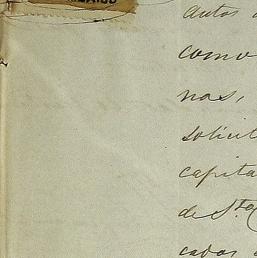 autos
como
nas,
solicit
capita
de Sta
cabos